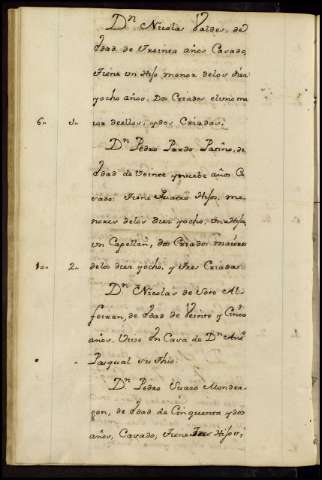 Dn. Nicolas Valdes, de
Edad de Treinta años Casado,
Tiene un Hijo menor de los diez
yocho años, Dos Criados el uno ma
6 „ 1 „ ior de ellos, y dos Criadas.
Dn. Pedro Pardo Patiño, de
Edad de Veinte y nuebe años Ca
sado: Tiene Quatro Hijos, me
nores de los diez yocho, Una Hija,
un Capellan, dos Criados maiores
10 „ 2 „ de los diez yocho, y Tres Criadas
Dn. Nicolas de
de Edad de Veinte y Cinco
años. Vive En Casa de Dn. Anto.
Pasqual su Thio.
Dn. Pedro Suaro Monde
gon, de Edad de Cinquenta y dos
años, Casado, Tiene Tres Hijos;